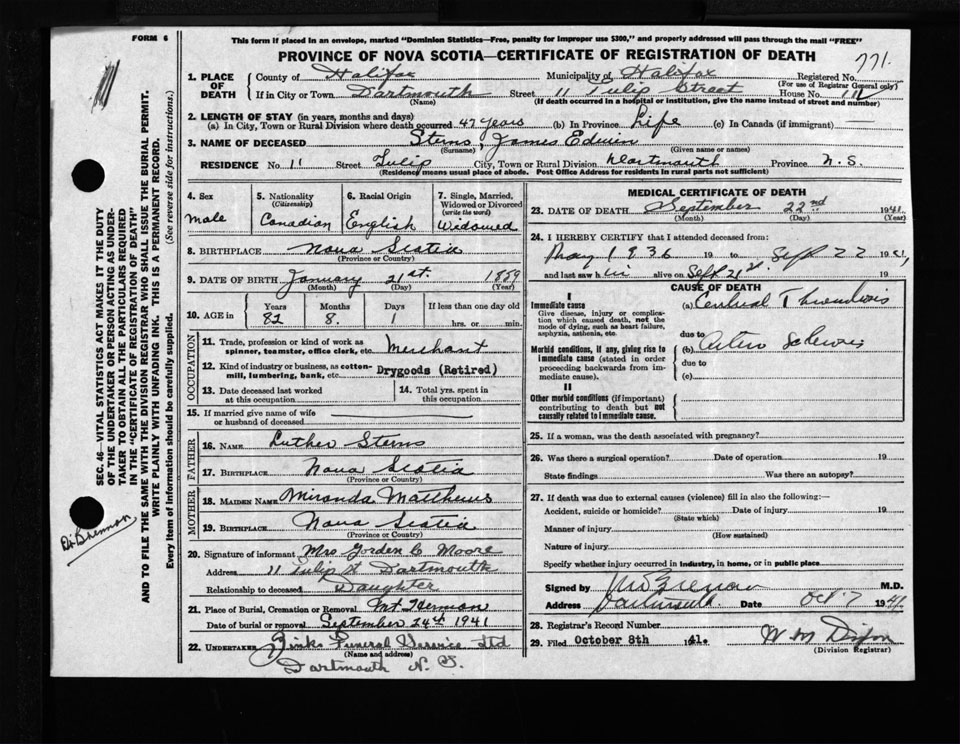 FORM 6
This form if placed in an envelope, marked "Dominion Statistics—Free, penalty for improper use $300," and properly addressed will pass through the mail "FREE"
PROVINCE OF NOVA SCOTIA—CERTIFICATE OF REGISTRATION OF DEATH
771.
1. PLACE OF DEATH
County of Halifax Municipality of Halifax Registered No.
(For use of Registrar General only)
If in City or Town Dartmouth Street 11 Tulip Street House No.
(Name) (If death occurred in a hospital or institution, give the name instead of street and number)
2. LENGTH OF STAY (in years, months and days)
(a) In City, Town or Rural Division where death occurred 47 years (b) In Province Life (c) In Canada (if immigrant) —
3. NAME OF DECEASED Sterns, James Edwin
(Surname) (Given name or names)
RESIDENCE No. 11 Street Tulip City, Town or Rural Division Dartmouth Province N.S.
(Residence means usual place of abode. Post Office Address for residents in rural parts not sufficient)
4. Sex
male
5. Nationality
(Citizenship)
Canadian
6. Racial Origin
English
7. Single, Married, Widowed or Divorced
(write the word)
Widowed
8. BIRTHPLACE Nova Scotia
(Province or Country)
9. DATE OF BIRTH January 21st. 1859
(Month) (Day) (Year)
10. AGE in
Years Months Days If less than one day old
82 8. 1 hrs. or min.
OCCUPATION
11. Trade, profession or kind of work as spinner, teamster, office clerk, etc. Merchant
12. Kind of industry or business, as cotton-mill, lumbering, bank, etc. Drygoods (Retired)
13. Date deceased last worked at this occupation
14. Total yrs. spent in this occupation
15. If married give name of wife or husband of deceased
FATHER
16. NAME Luther Sterns
17. BIRTHPLACE Nova Scotia
MOTHER
18. MAIDEN NAME Miranda Matthews
19. BIRTHPLACE Nova Scotia
(Province or Country)
20. Signature of informant Mrs Gorden C Moore
Address 11 Tulip St Dartmouth
Relationship to deceased Daughter
21. Place of Burial, Cremation or Removal Mt Hermon
Date of burial or removal September 24th 1941
22. UNDERTAKER Zinks Funeral Service Ltd
(Name and address)
Dartmouth N.S.
MEDICAL CERTIFICATE OF DEATH
23. DATE OF DEATH September 22nd 1941
(Month) (Day) (Year)
24. I HEREBY CERTIFY that I attended deceased from:
May 1936 19 to Sept 22 1941,
and last saw h im alive on Sept 21st 19
CAUSE OF DEATH
I
Immediate cause
Give disease, injury or complication which caused death, not the mode of dying, such as heart failure, asphyxia, asthenia, etc.
(a) Cerebral Thrombosis
due to
Morbid conditions, if any, giving rise to immediate cause (stated in order proceeding backwards from immediate cause).
(b) Arterio Sclerosis
due to
(c)
II
Other morbid conditions (if important) contributing to death but not causally related to immediate cause.
25. If a woman, was the death associated with pregnancy?
26. Was there a surgical operation? Date of operation 19
State findings Was there an autopsy?
27. If death was due to external causes (violence) fill in also the following:—
Accident, suicide or homicide? Date of injury 19
(State which)
Manner of injury
(How sustained)
Nature of injury
Specify whether injury occurred in industry, in home, or in public place
Signed by M.D.
Address Date Oct 7 1941.
28. Registrar's Record Number
29. Filed October 8th 1941. W M Dixon
(Division Registrar)
SEC. 46—VITAL STATISTICS ACT MAKES IT THE DUTY
OF THE UNDERTAKER OR PERSON ACTING AS UNDER-
TAKER TO OBTAIN ALL THE PARTICULARS REQUIRED
IN THE "CERTIFICATE OF REGISTRATION OF DEATH"
AND TO FILE THE SAME WITH THE DIVISION REGISTRAR WHO SHALL ISSUE THE BURIAL PERMIT.
WRITE PLAINLY WITH UNFADING INK. THIS IS A PERMANENT RECORD.
Every item of information should be carefully supplied. (See reverse side for instructions.)